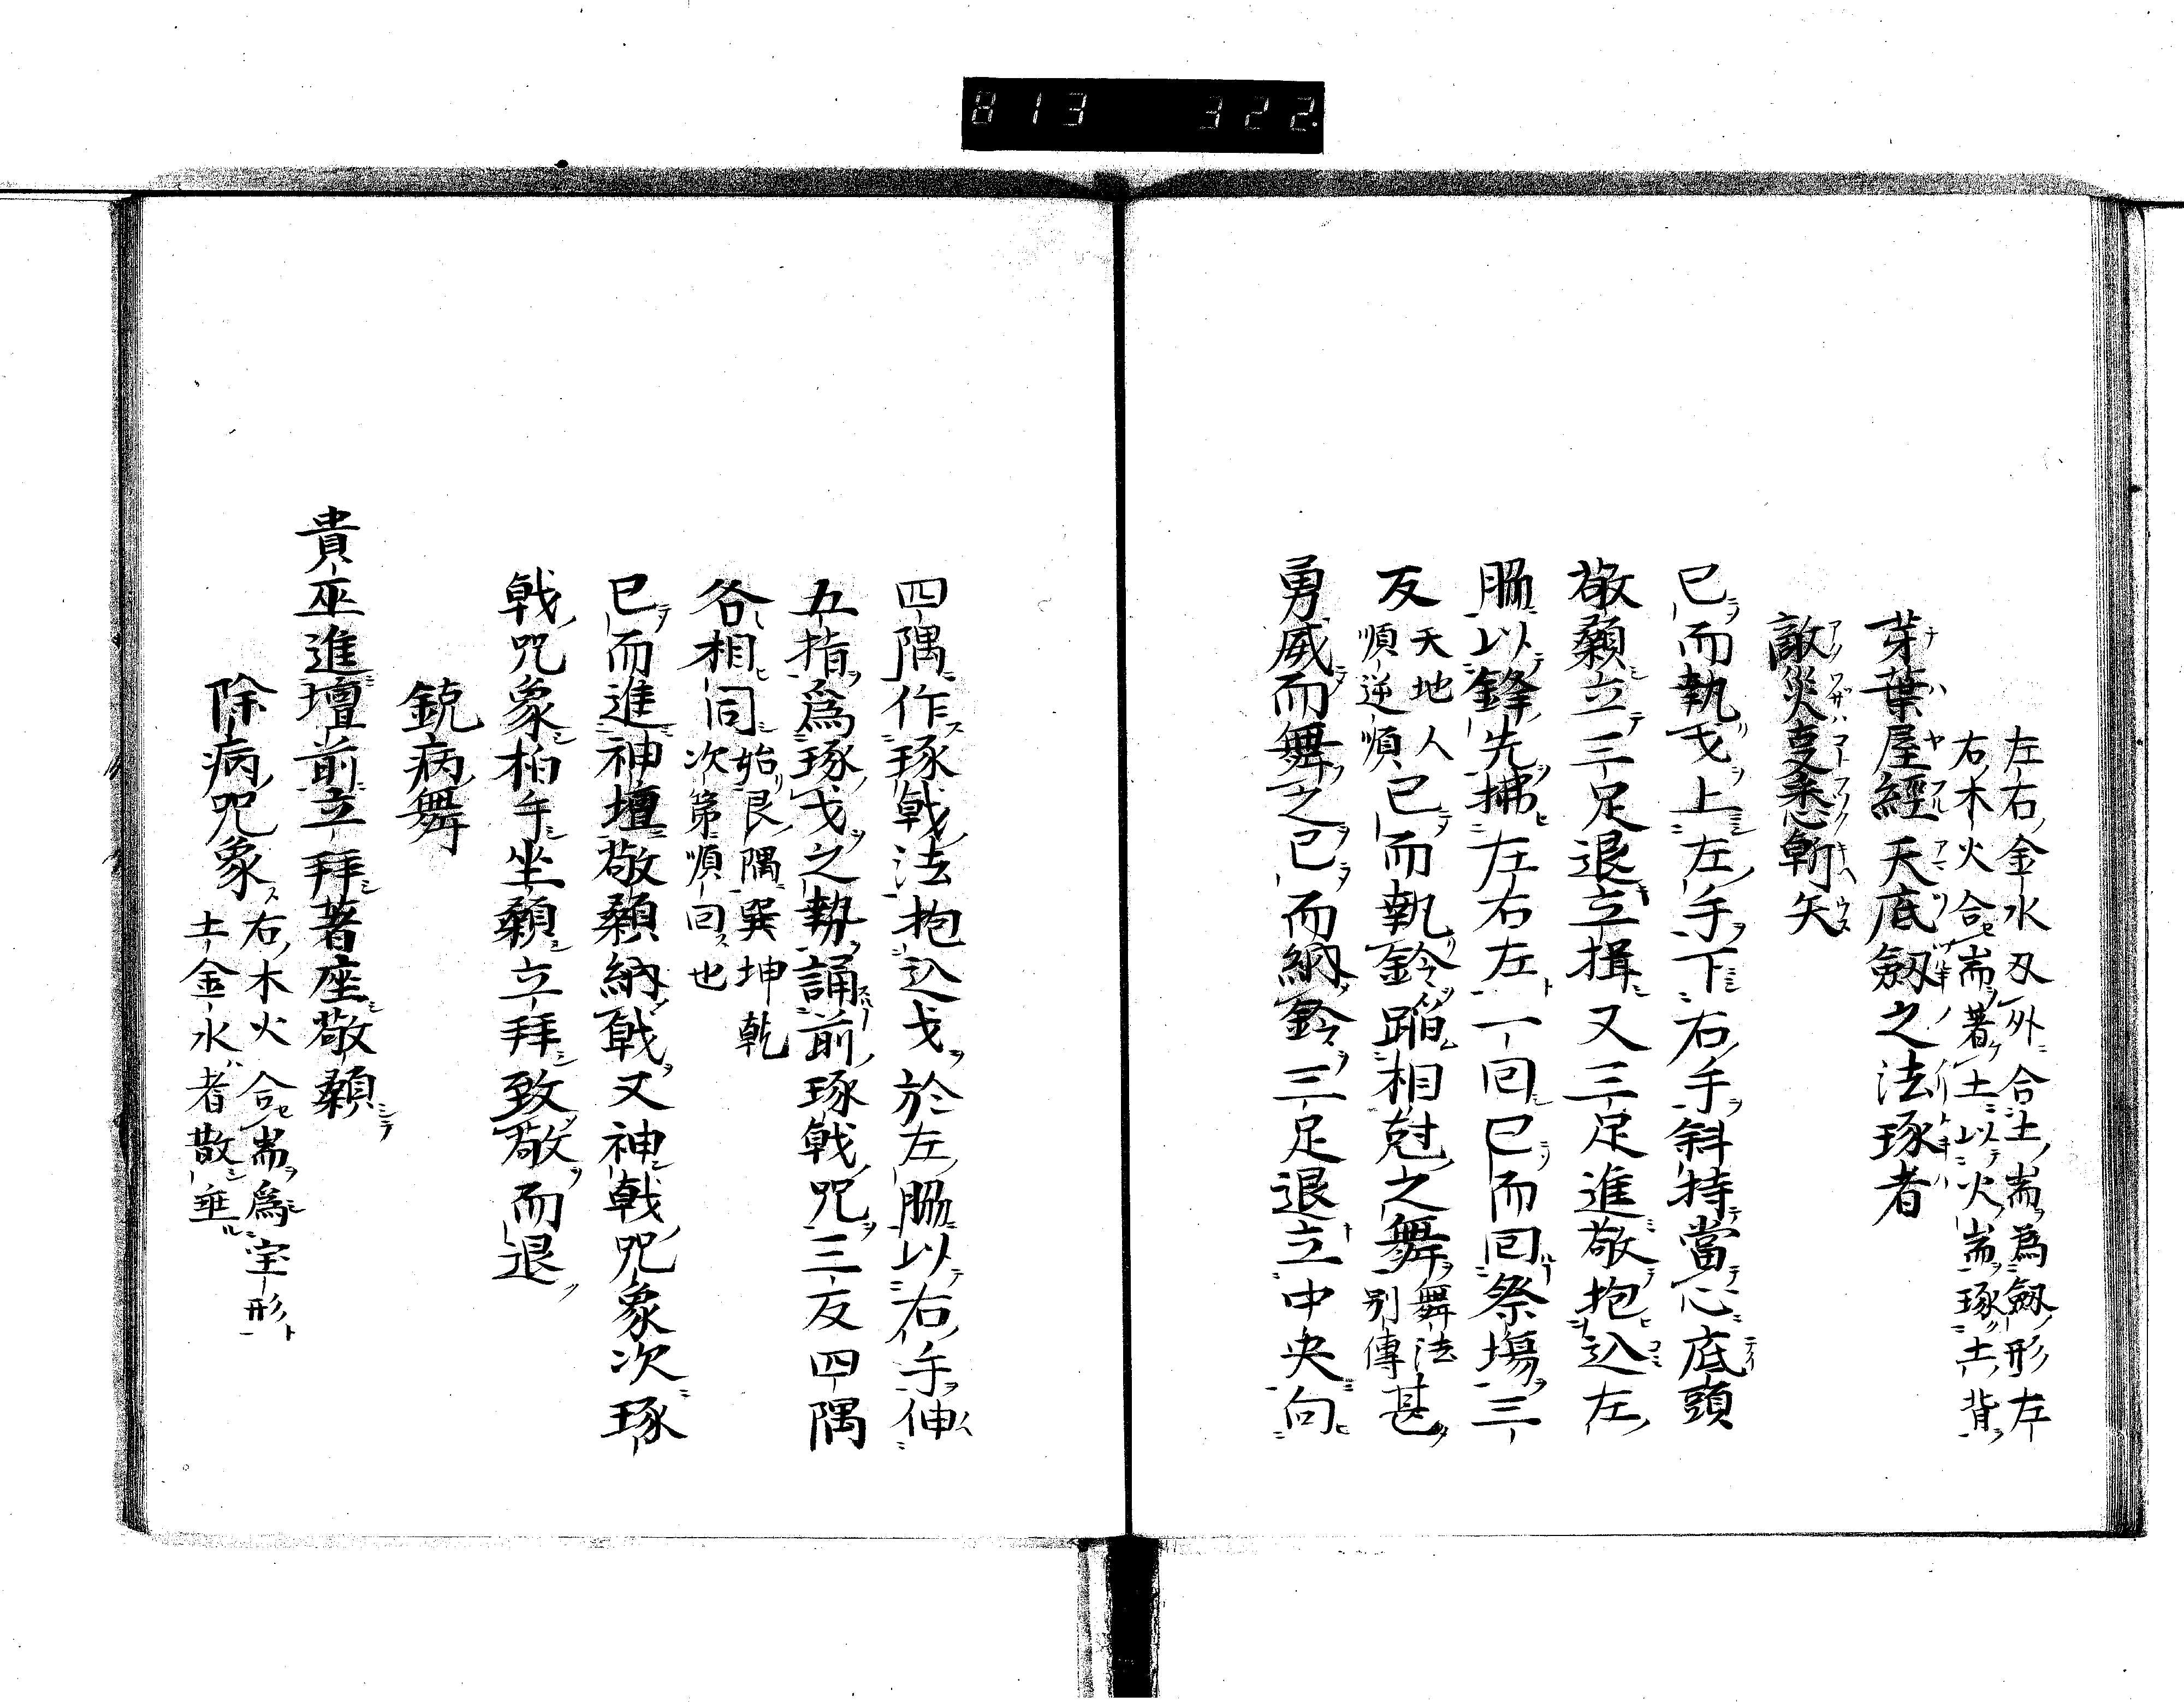 813 322
左右金水刄外合土耑為劔形左
右木火合耑著土以火耑琢土背
芽葉屋經天底劔之法琢者
敵災支悉斬矢
已而執戈上左手下右手斜持當心底頭
敬顙立三足退立揖又三足進敬抱込左
腸以鋒先拂左右左一回已而回祭塲三
反天地人
順逆順已而執鈴蹈相尅之舞舞法
別傳甚
勇威而舞之已而納鈴三足退立中央向
四隅作琢戟法抱込戈於左腸以右手伸
五指為琢戈之勢誦前琢戟咒三反四隅
各相同始艮隅巽坤乾
次第順回也
已而進神壇敬顙納戟又神戟咒象次琢
戟咒象柏手坐顙立拜致敬而退
鋭病舞
貴巫進壇前立拜著座敬顙
除病咒象右木火合耑為宝形
土金水者散垂